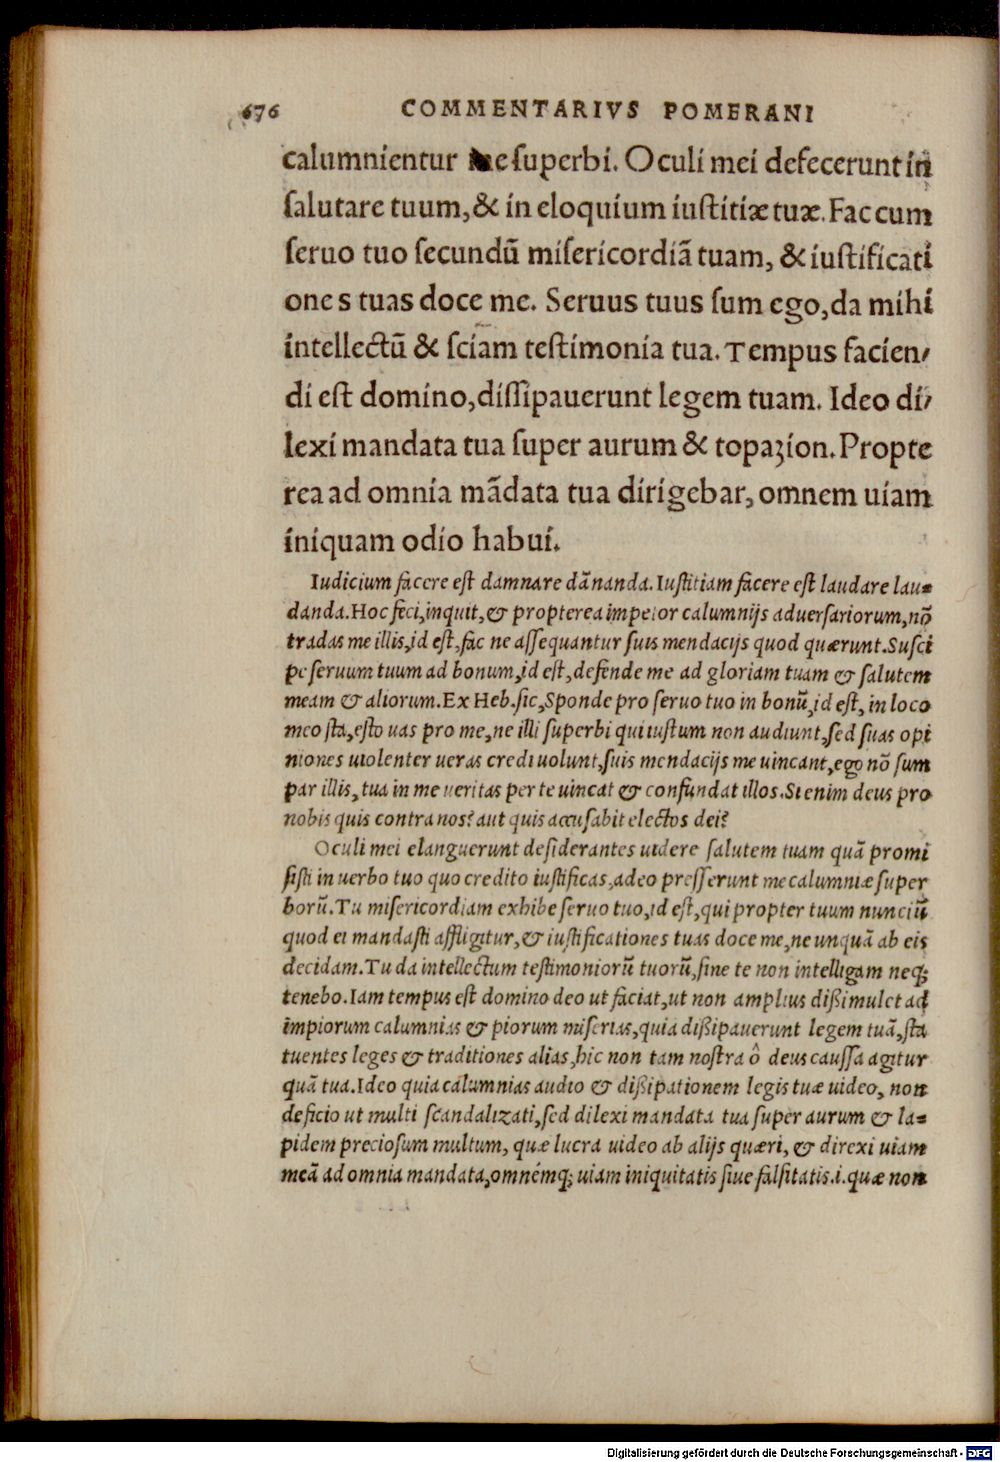 676 COMMENTARIVS POMERANI
calumnientur me ſuperbi. Oculi mei defecerunt in
ſalutare tuum, & in eloquium iuſtitiæ tuæ. Fac cum
ſeruo tuo ſecundũ miſericordiã tuam, & iuſtificati
ones tuas doce me. Seruus tuus ſum ego, da mihi
intellectũ & ſciam teſtimonia tua. Tempus facien/
di eſt domino, diſſipauerunt legem tuam. Ideo di/
lexi mandata tua ſuper aurum & topaʒion. Propte
rea ad omnia mãdata tua dirigebar, omnem uiam
iniquam odio habui.
Iudicium facere eſt damnare dãnanda. Iuſtitiam facere eſt laudare lau⸗
danda. Hoc feci, inquit, & propterea impetor calumnijs aduerſariorum, nõ
tradas me illis, id eſt, fac ne aſſequantur ſuis mendacijs quod quærunt. Suſci
pe ſeruum tuum ad bonum, id eſt, defende me ad gloriam tuam & ſalutem
meam & aliorum. Ex Heb. ſic, Sponde pro ſeruo tuo in bonũ, id eſt, in loco
meo ſta, eſto uas pro me, ne illi ſuperbi qui iuſtum non audiunt, ſed ſuas opi
niones uiolenter ueras credi uolunt, ſuis mendacijs me uincant, ego nõ ſum
par illis, tua in me ueritas per te uincat & confundat illos. Si enim deus pro
nobis quis contra nos? aut quis accuſabit electos dei?
Oculi mei elanguerunt deſiderantes uidere ſalutem tuam quã promi
ſiſti in uerbo tuo quo credito iuſtificas, adeo preſſerunt me calumniæ ſuper
borũ. Tu miſericordiam exhibe ſeruo tuo, id eſt, qui propter tuum nunciũ
quod ei mandaſti affligitur, & iuſtificationes tuas doce me, ne unquã ab eis
decidam. Tu da intellectum teſtimoniorũ tuorũ, ſine te non intelligam neq;
tenebo. Iam tempus eſt domino deo ut faciat, ut non amplius dißimulet ad
impiorum calumnias & piorum miſerias, quia dißipauerunt legem tuã, ſta
tuentes leges & traditiones alias, hic non tam noſtra ô deus cauſſa agitur
quã tua. Ideo quia calumnias audio & dißipationem legis tuæ uideo, non
deficio ut multi ſcandalizati, ſed dilexi mandata tua ſuper aurum & la⸗
pidem precioſum multum, quæ lucra uideo ab alijs quæri, & direxi uiam
meã ad omnia mandata, omnémq; uiam iniquitatis ſiue falſitatis .i. quæ non
Digitalisierung gefördert durch die Deutsche Forschungsgemeinschaft - DFG